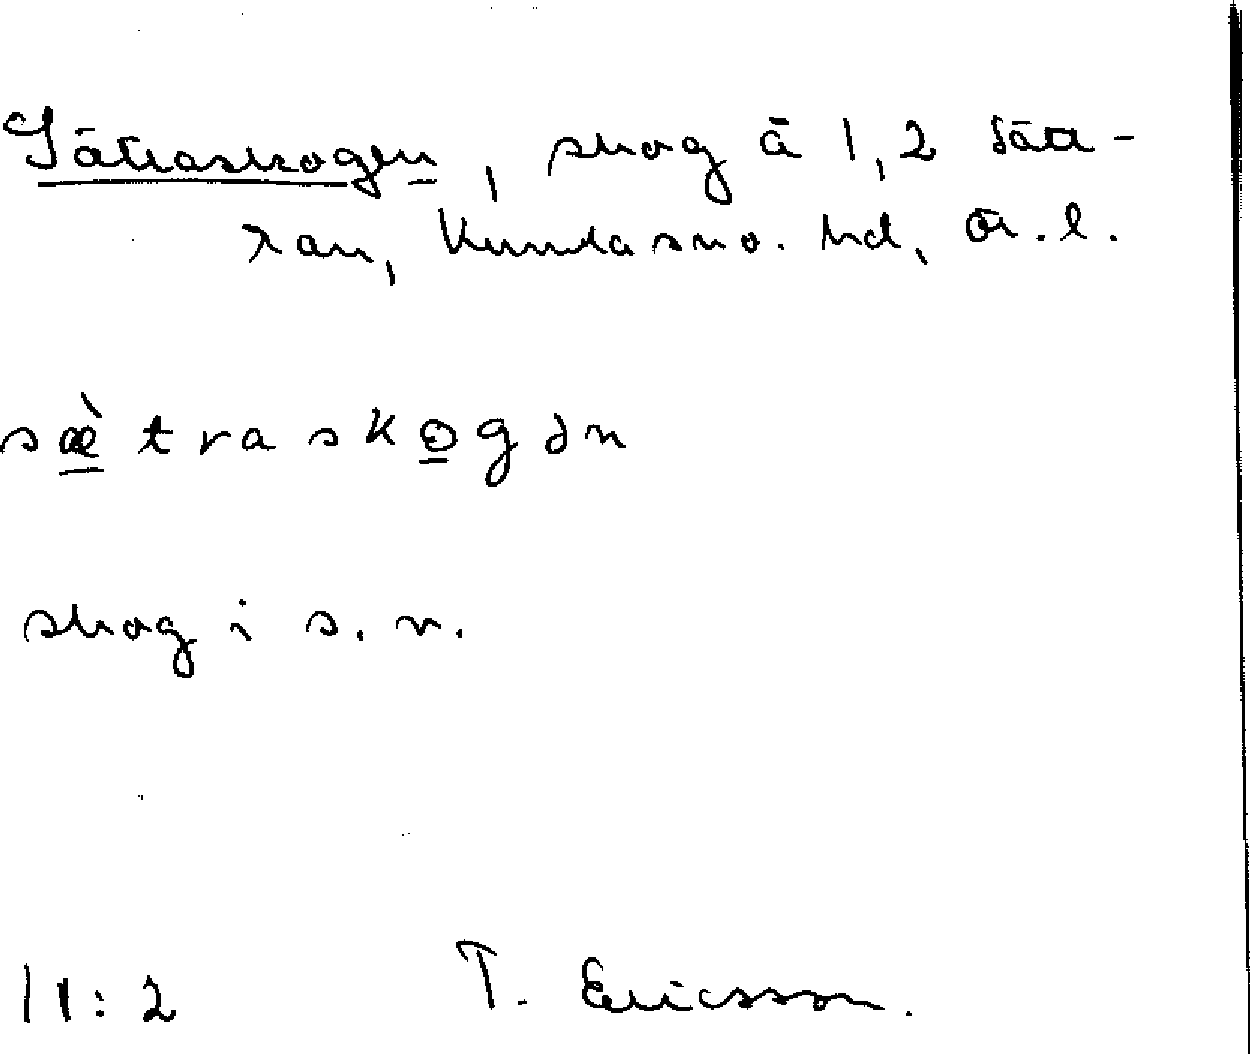 Sätraskogen, skog å 1,2 Sätt-
ran, Kumla sn o. hd, Ör. l.
sæ̀traskogən
skog i s. n.
11:2 T. Ericsson.